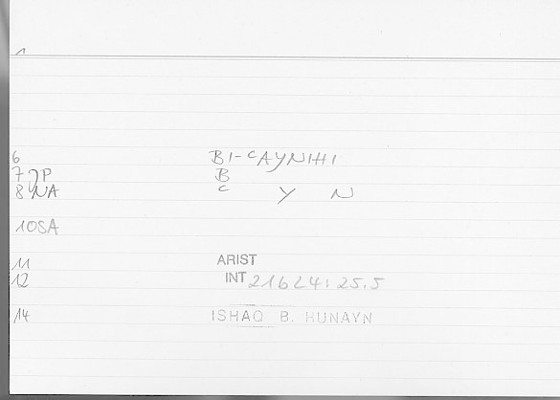 1
6 BI-CAYNIHI
7 JP B
8 NA C Y N
10 SA
11 ARIST
12 INT 216L4:25.5
14 ISHAQ B. HUNAYN